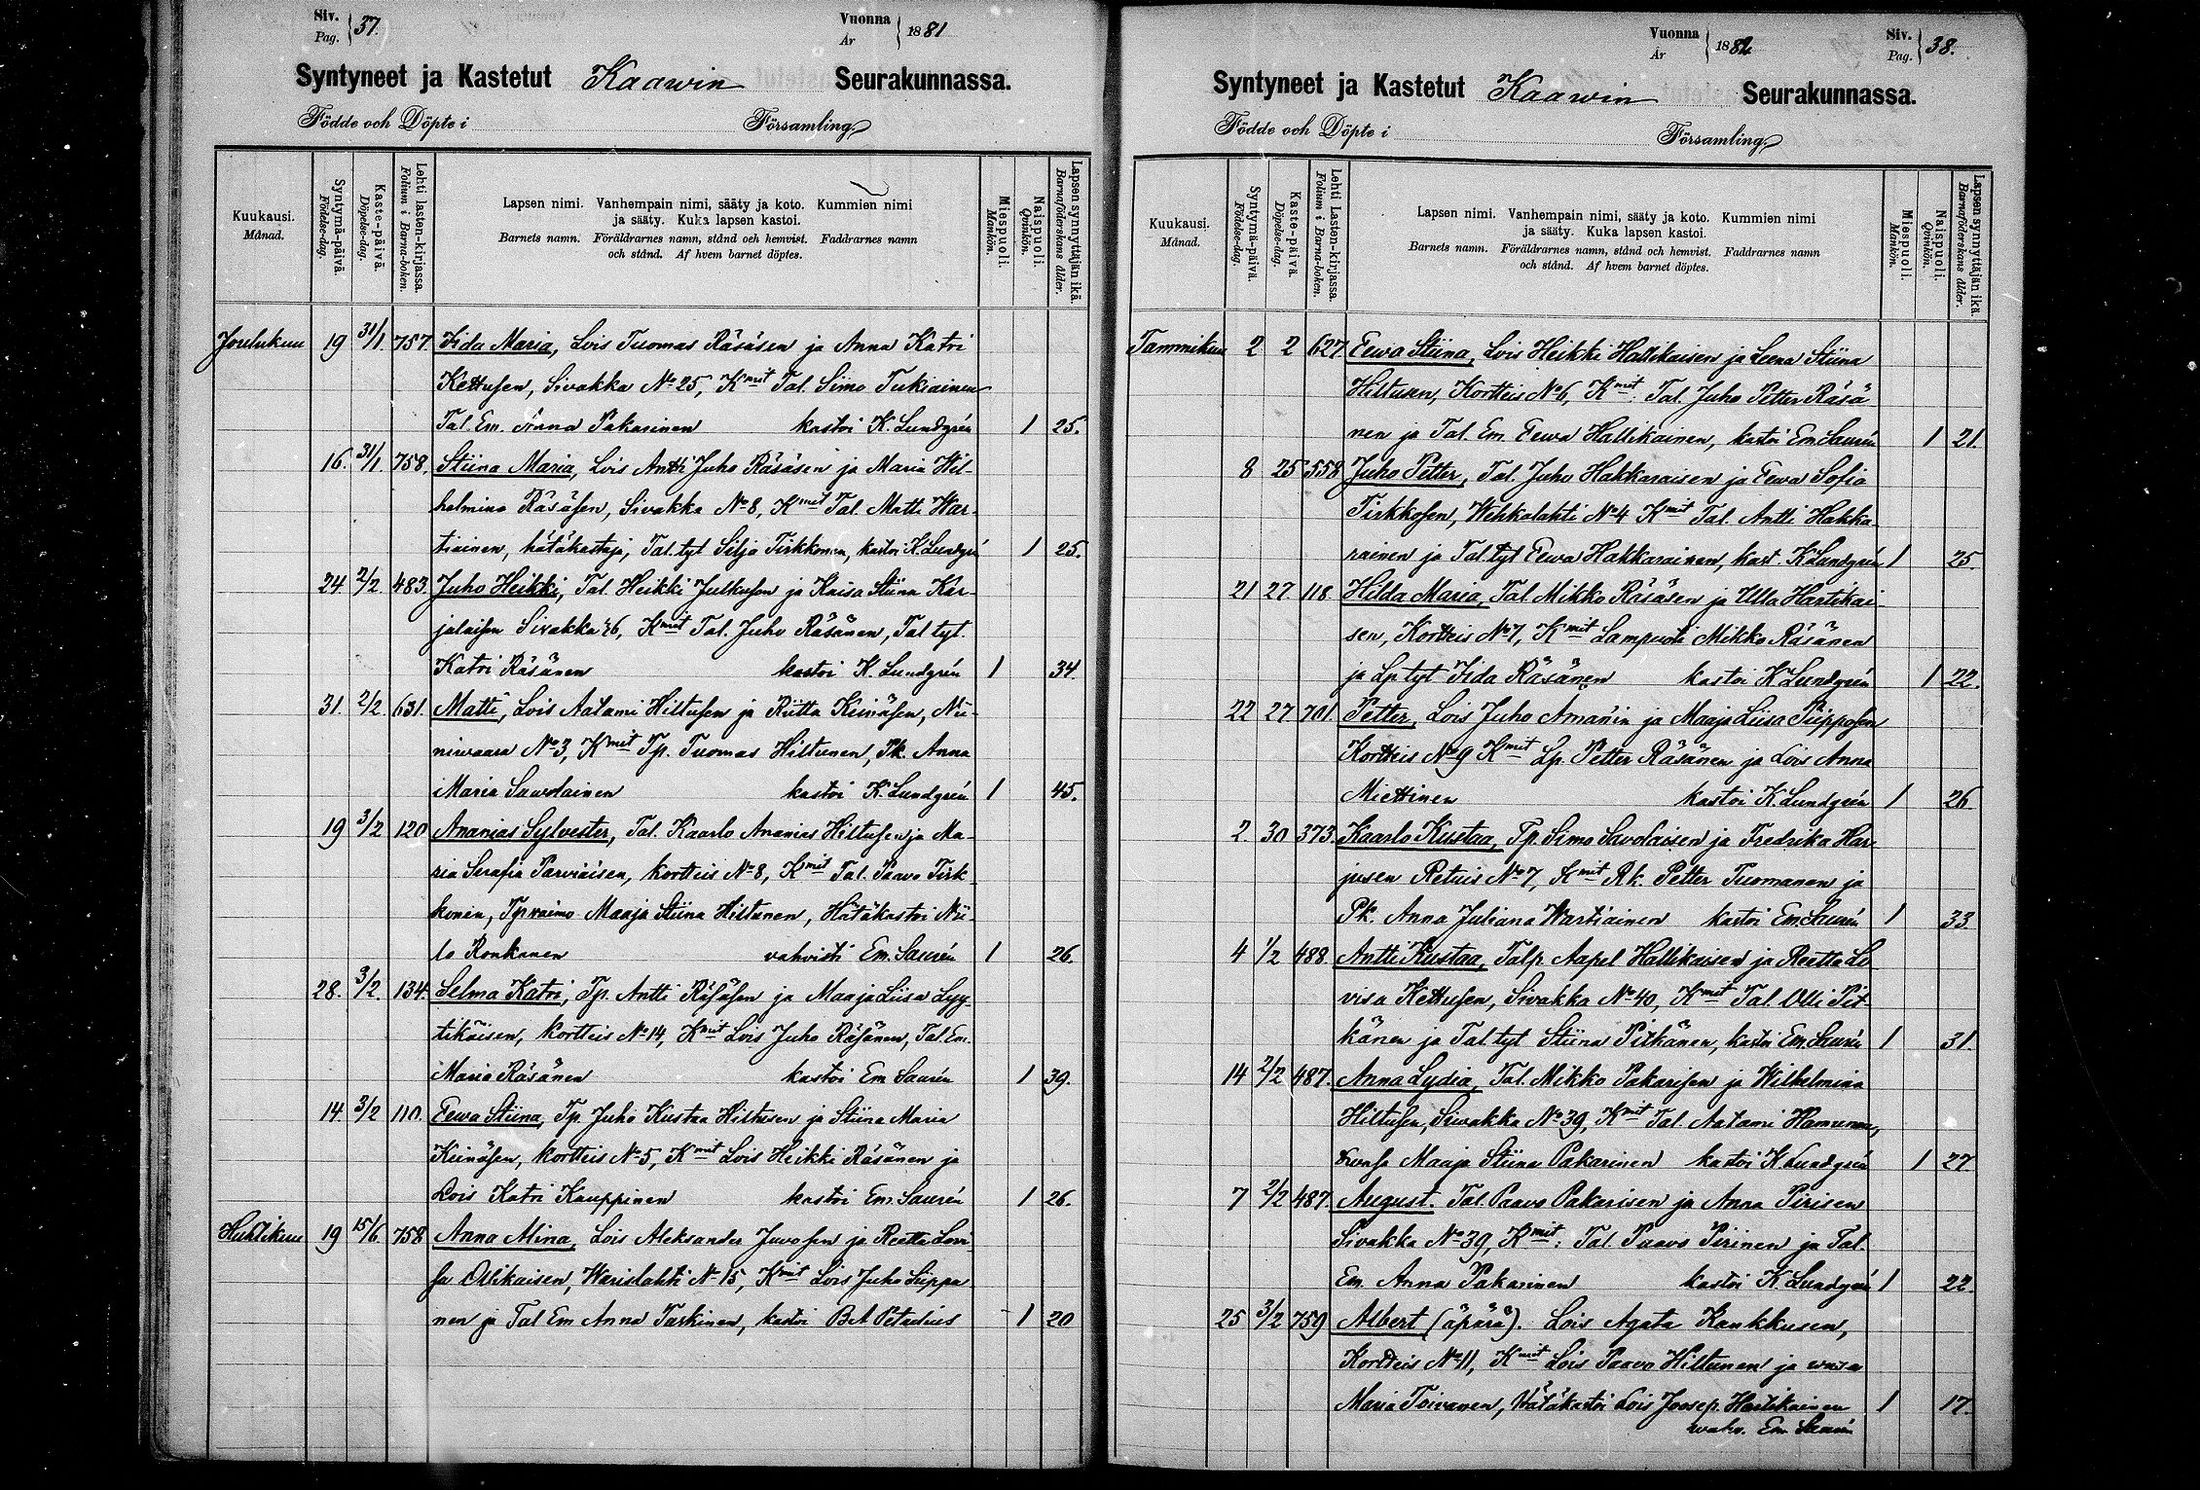 Siv. Pag. } 37.
Vuonna År } 1881
Syntyneet ja Kastetut Kaawin Seurakunnassa.
Födde och Döpte i Församling
Kuukausi. Månad.
Syntymä-päivä. Födelse-dag.
Kaste-päivä. Döpelse-dag.
Lehti lasten-kirjassa. Folium i Barna-boken.
Lapsen nimi. Vanhempain nimi, sääty ja koto. Kummien nimi
ja sääty. Kuka lapsen kastoi.
Barnets namn. Föräldrarnes namn, stånd och hemvist. Faddrarnes namn
och stånd. Af hvem barnet döptes.
Miespuoli. Mankön.
Naispuoli. Qvinkön.
Lapsen synnyttäjän ikä. Barnaföderskans ålder.
Joulukuu 19 31/1. 757. Iida Maria, Lois Tuomas Räsäsen ja Anna Katri
Kettusen, Sivakka No 25, Kmit Tal. Simo Tukiainen
Tal. Em. Anna Pakarinen kastoi K. Lundgrén 1 25.
16. 31/1. 758. Stiina Maria, Lois Antti Juho Räsäsen ja Maria Wil-
helmina Räsäsen, Sivakka No 8, Kmit Tal. Matti War-
tiainen, hätäkastaja, Tal. tyt Silja Tirkkonen, kastoi K. Lundgrén 1 25.
24. 2/2. 483. Juho Heikki, Tal. Heikki Julkusen ja Kaisa Stiina Kar-
jalaisen Sivakka 26, Kmit Tal. Juho Räsänen, Tal tyt.
Katri Räsänen kastoi K. Lundgrén 1 34.
31. 2/2 631. Matti, Lois Aatami Hiltusen ja Riitta Keinäsen, Nii-
niwaara No 3, Kmit Tp. Tuomas Hiltunen, Pk. Anna
Maria Sawolainen kastoi K. Lundgrén 1 45.
19 3/2 120 Ananias Sylvester, Tal. Kaarlo Ananias Hiltusen ja Ma-
ria Serafia Parviäisen, kortteis No 8, Kmit Tal. Paavo Tirk-
konen, Tp vaimo Maaja Stiina Hiltunen, Hätäkastoi Nii-
lo Ronkanen vahvisti Em. Saurén 1 26.
28. 3/2. 134. Selma Katri, Tp. Antti Räsäsen ja Maaja Liisa Lyy-
tikäisen, kortteis No 14, Kmit Lois Juho Räsänen, Tal. Em.
Maria Räsänen kastoi Em Saurén 1 39.
14. 3/2 110. Eewa Stiina, Tp. Juho Kustaa Hiltusen ja Stiina Maria
Keinäsen, kortteis No 5, Kmit Lois Heikki Räsänen ja
Lois Katri Kauppinen kastoi Em. Saurén 1 26.
Huhtikuu 19 15/6. 758 Anna Alina, Lois Aleksander Juvosen ja Reetta Lovi-
sa Ollikaisen, Warislahti No 15, Kmit Lois Juho Siippa-
nen ja Tal Em Anna Tarkinen, kastoi 1 20
Vuonna År } 1882
Siv. Pag. } 38.
Syntyneet ja Kastetut Kaawin Seurakunnassa.
Födde och Döpte i Församling
Kuukausi. Månad.
Syntymä-päivä. Födelse-dag.
Kaste-päivä. Döpelse-dag.
Lehti Lasten-kirjassa. Folium i Barna-boken.
Lapsen nimi. Vanhempain nimi, sääty ja koto. Kummien nimi
ja sääty. Kuka lapsen kastoi.
Barnets namn. Föräldrarnes namn, stånd och hemvist. Faddrarnes namn
och stånd. Af hvem barnet döptes.
Miespuoli. Mankön.
Naispuoli. Qvinkön.
Lapsen synnyttäjän ikä. Barnaföderskans ålder.
Tammikuu 2 2 627 Eewa Stiina, Lois Heikki Hallikaisen ja Leena Stiina
Hiltusen, Kortteis No 6, Kmit. Tal. Juho Petter Räsä
nen ja Tal. Em. Eewa Hallikainen, kastoi Em Saurén 1 21.
8 25 558 Juho Petter, Tal. Juho Hakkaraisen ja Eewa Sofia
Tirkkosen, Wehkalahti No 4 Kmit Tal. Antti Hakka-
rainen ja Tal tyt Eewa Hakkarainen, kast. K Lundgrén 1 25.
21 27. 118. Hilda Maria, Tal Mikko Räsäsen ja Ulla Hartikai-
sen, Kortteis No 7, Kmit Lampuoti Mikko Räsänen
ja Lp tyt Iida Räsänen kastoi K Lundgrén 1 22.
22 27 701. Petter, Lois Juho Ämänin ja Maaja Liisa Piipposen
Kortteis No 9 Kmit Lp. Petter Räsänen ja Lois Anna
Miettinen kastoi K. Lundgrén 1 26
2 30 373. Kaarlo Kustaa, Tp. Simo Savolaisen ja Fredrika Har-
jusen Retuis No 7, Kmit Rk. Petter Tuomanen ja
Pk. Anna Juliana Wartiainen kastoi Em. Saurén 1 33
4 1/2 488. Antti Kustaa, Talp. Aapel Hallikaisen ja Reetta Lo
visa Kettusen, Sivakka No 40, Kmit Tal. Olli Pit
känen ja Tal tyt Stiina Pitkänen, kastoi Em Saurén 1 31.
14 2/2 487. Anna Lydia, Tal. Mikko Pakarisen ja Wilhelmina
Hiltusen, Sivakka No 39, Kmit Tal. Aatami Hamunen,
Maaja Stiina Pakarinen kastoi K Lundgrén 1 27
7 2/2 487. August. Tal. Paavo Pakarisen ja Anna Pirisen
Sivakka No 39, Kmit: Tal. Paavo Pirinen ja Tal.
Em. Anna Pakarinen kastoi K. Lundgrén 1 22.
25 3/2 759 Albert (äpärä). Lois Agata Kaukkusen,
Kortteis No 11, Kmit Lois Paavo Hiltunen ja
Maria Toivanen, Hätäkastoi Lois Joosep. Hartikainen 1 17.
wahv. Em Saurén